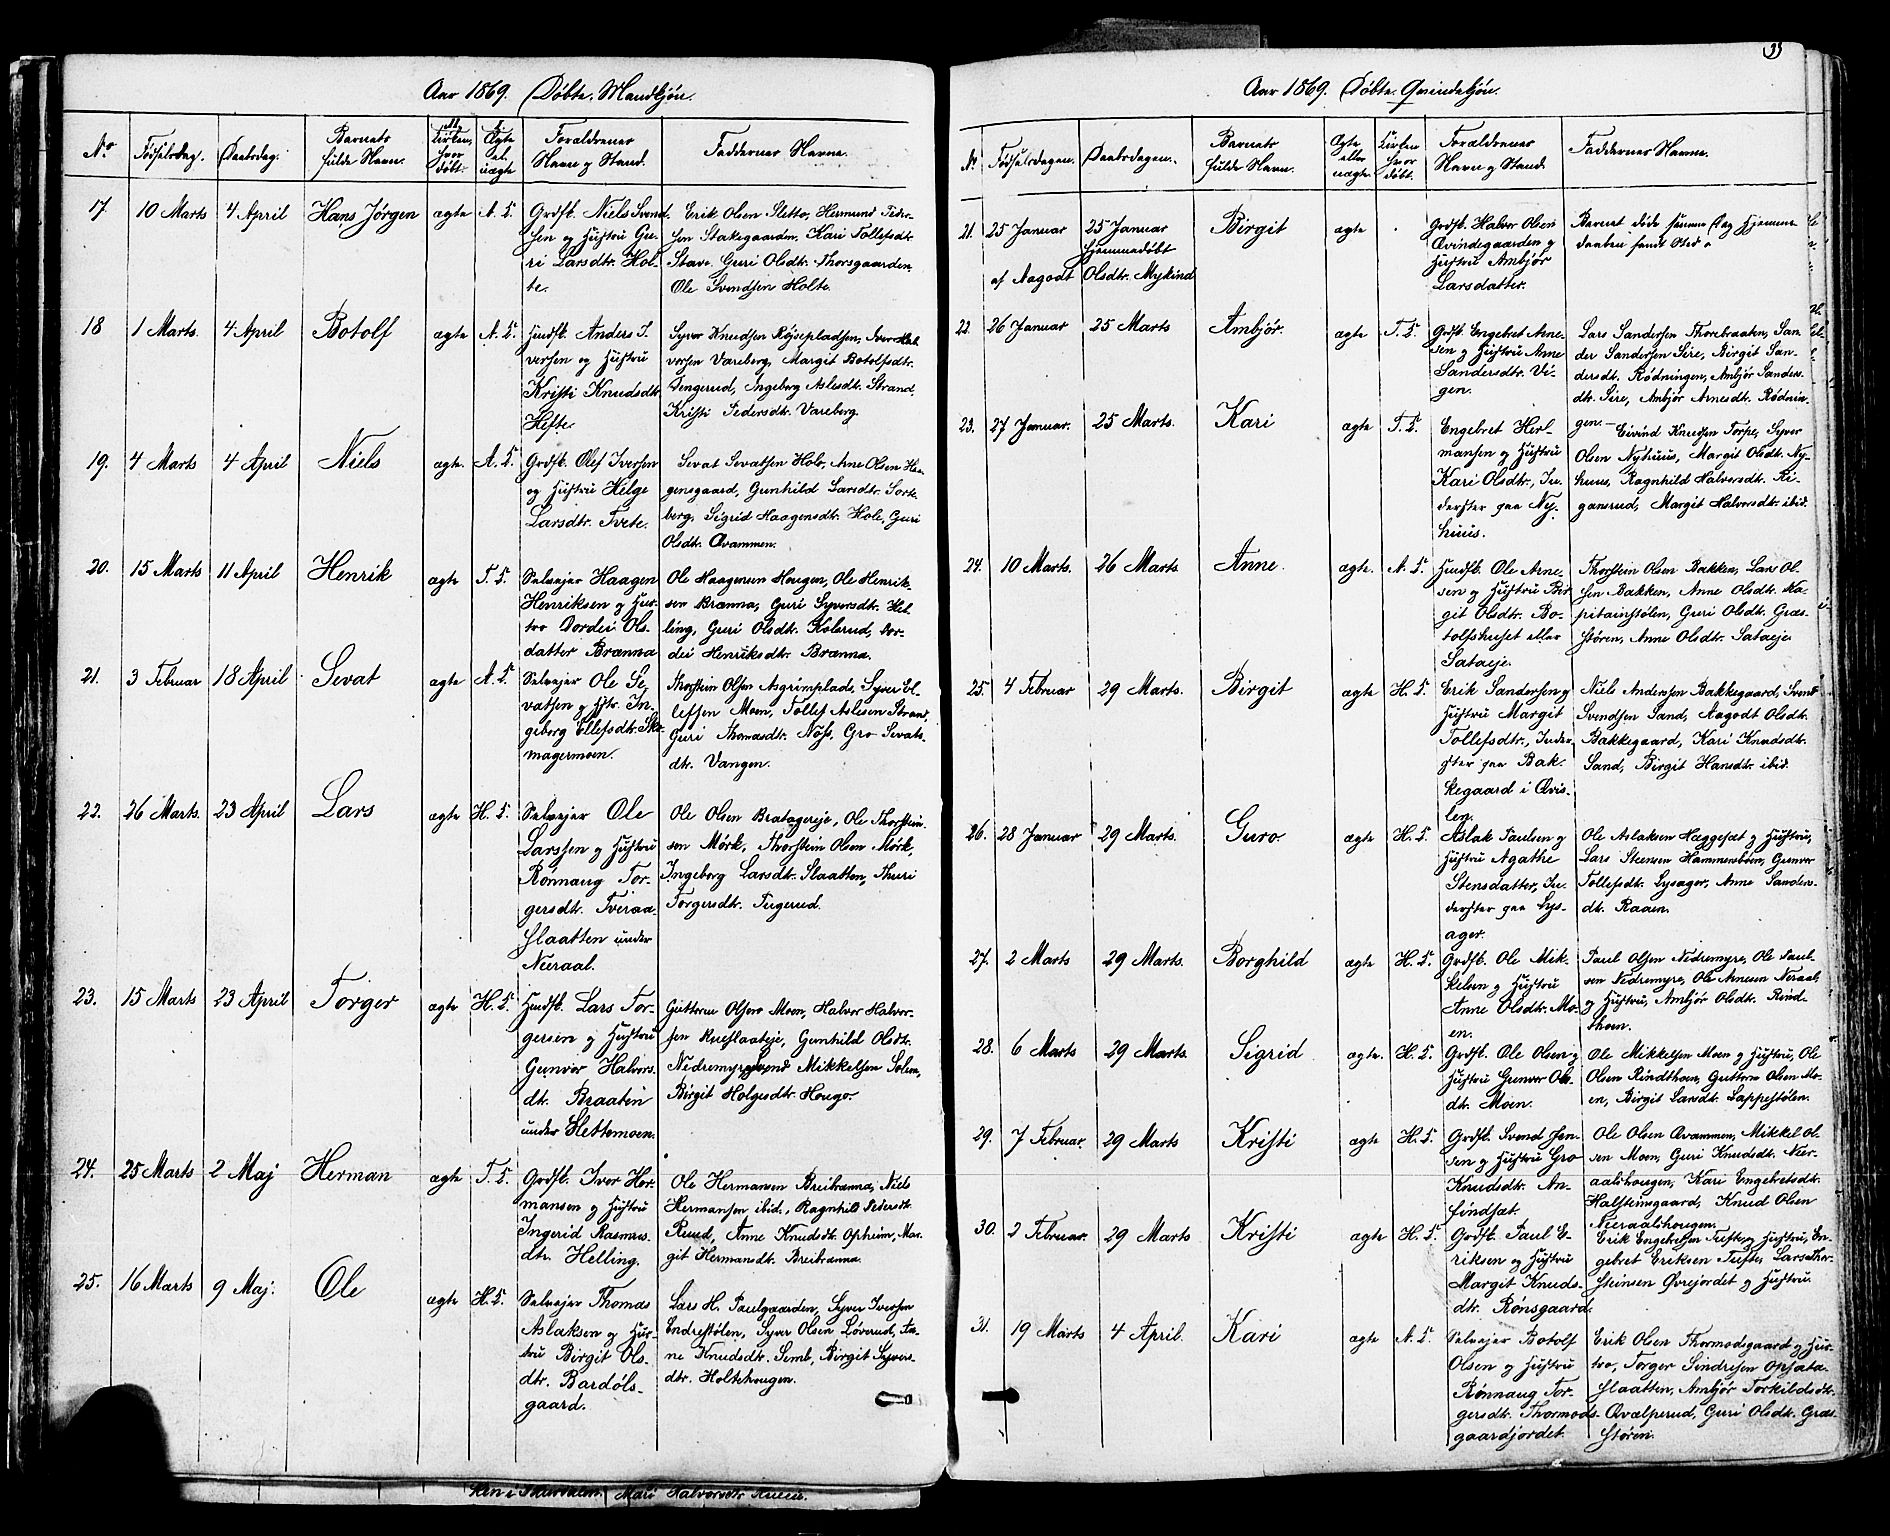 Aar 1869. Døbte. Mandkjøn.
No Fødselsdag. Daabsdag. Barnets fulde Navn. Kirken, hvor døbt. Ægte el. uægte Forældrenes Navn og Stand. Faddernes Navne.
17. 10 Marts 4 April Hans Jørgen ægte A. K.
Grdsb. Niels Svend-
sen og Hustru Gu-
ri Larsdtr. Hol-
te.
Erik Olsen Sletto, Hermund Peder-
sen Stakegaarden, Kari Tollefsdtr.
Stave. Guri Olsdtr. Thorsgaarden.
Ole Svendsen Holte.
18 1 Marts. 4 April Botolf ægte A. K.
Husfb. Anders I-
versen og Hustru
Kristi Knudsdtr.
Hefte.
Syver Knudsen Røysepladsen, Iver Hal-
vorsen Vareberg, Margit Botolfsdtr.
Tengerud, Ingeborg Aslesdtr. Strand,
Kristi Pedersdtr. Vareberg.
19. 4 Marts 4 April Niels ægte. A. K.
Grdsb. Olef Iversen
og Hustru Helge
Larsdtr. Tvete.
Sevat Sevatsen Hole, Arne Olsen Haa-
gensgaard, Gunhild Larsdtr. Sorte-
berg, Sigrid Haagensdtr. Hole, Guri
Olsdtr. Qvammen.
20. 15 Marts 11 April Henrik ægte T. K.
Selvejer Haagen
Henriksen og Hus-
tro Dordei Ols-
datter Brænna
Ole Haagensen Hougen, Ole Henrik-
sen Brænna, Guri Syversdtr. Hel-
ling, Guri Olsdtr. Kolsrud, Dor-
dei Henriksdtr. Brænna.
21. 3 Februar 18 April Sevat ægte A. K.
Selvejer Ole Se-
vatsen og Hstr. In-
geborg Tollefsdtr. Sko-
magermoen.
Thorstein Olsen Asgrimplads, Syver El-
lefsen Moen, Tollef Aslesen Strand,
Guri Thomasdtr. Nøss, Gro Sevats-
dtr. Vangen.
22. 26 Marts. 23 April Lars ægte H. K.
Selvejer Ole
Larssen og Hustru
Rønnaug Tor-
gersdtr. Tveraa-
slaatten under
Neeraal.
Ole Olsen Bratagereie, Ole Thorstein-
sen Mørk, Thorstein Olsen Mørk,
Ingeborg Larsdtr. Slaatten, Thuri
Torgersdtr. Tugerud.
23. 15 Marts 23 April Torger ægte H. K.
Husfb. Lars Tor-
gersen og Hustru
Gunvor Halvors-
dtr. Braaten
under Slettemoen.
Guttorm Olsen Moen, Halvor Halvor-
sen Rueslaateje, Gunhild Olsdtr.
Nedremyr, Svend Mikkelsen Solem,
Birgit Holgesdtr. Hougo.
24. 25 Marts 2 Maj Herman ægte T. K.
Grdsb. Iver Her-
mansen og Hustru
Ingerid Rasmus-
dtr. Helling.
Ole Hermansen Breibrænna, Niels
Hermansen ibid., Ragnhild Pedersdtr.
Ruud, Anne Knudsdtr. Opheim, Mar-
git Hermansdtr. Breibrænna.
25. 16 Marts 9 Maj. Ole ægte H. K.
Selvejer Thomas
Aslaksen og Hus-
tru Birgit Ols-
dtr. Bardøls-
gaard.
Lars H. Paulgaarden, Syver Iversen
Endrestølen, Syver Olsen Løverud, An-
ne Knudsdtr. Semb, Birgit Syvers-
dtr. Holtehougen.
Mari Halvorsdtr.
33
Aar 1869. Døbte. Qvindekjøn.
No. Fødselsdagen. Daabsdagen. Barnets fulde Navn. Ægte eller uægte Kirken hvor døbt. Forældrenes Navn og Stand. Faddernes Navne.
21. 25 Januar 25 Januar Birgit ægte
hjemmedøbt
af Aagodt Olsdtr. Mykind
Grdsb. Halvor Olsen
Qvindegaarden og
Hustru Ambjør
Larsdatter.
Barnet døde samme Dag Hjemme
daaben fandt Sted.
22. 26 Januar 25 Marts Ambjør. ægte T. K.
Grdsb. Engebret Arne-
sen og Hustru Anne
Sandersdtr. Vi-
gen.
Lars Sandersen Thorebraaten, San-
der Sandersen Sire, Birgit San-
dersdt. Rødningen, Ambjør Sanders-
dt. Sire, Ambjør Arnesdt. Rødnin-
gen.
23. 27 Januar. 25 Marts. Kari ægte T. K.
Engebret Her-
mansen og Hustru
Kari Olsdtr., In-
derster paa Ny-
huus.
Eivind Knudsen Torpe, Syver
Olsen Nyhuus, Margit Olsdt. Ny-
huus, Ragnhild Halvorsdt. Ri-
gansrud, Margit Halvorsdt. ibid.
24. 10 Marts. 26 Marts Anne. ægte. A. K.
Husfb. Ole Arne-
sen og Hustru Bir-
git Olsdtr. Bo-
tolfshuset eller
Sataeje.
Thorstein Olsen Bakken, Lars Ol-
sen Bakken, Anne Olsdt. Ka-
pitainstølen, Guri Olsdt. Græs-
støren, Anne Olsdtr. Sataeje
25. 4 Februar 29 Marts. Birgit ægte H. K.
Erik Sandersen og
Hustru Margit
Tollefsdtr., Inder-
ster paa Bak-
kegaard i Qvis-
len.
Niels Andersen Bakkegaard, Svend
Svendsen Sand, Aagodt Olsdt.
Bakkegaard, Kari Knudsdtr.
Sand, Birgit Hansdtr. ibid.
26. 28 Januar 29 Marts. Guro. ægte H. K.
Aslak Paulsen og
Hustru Agathe
Stensdatter, In-
derster paa Lys-
ager.
Ole Aslaksen Næggesæt og Hustru,
Lars Steensen Hammersbøen, Gunvor
Tollefsdtr. Lysager, Anne Sanders-
dt. Raaen.
27. 2 Marts 29 Marts. Borghild ægte H. K.
Grdsb. Ole Mik-
kelsen og Hustru
Anne Olsdtr. Mo-
en.
Paul Olsen Nedremyre, Ole Paul-
sen Nedremyre, Ole Arnesen Neraal
og Hustru, Ambjør Olsdt. Rind-
thoen.
28. 6 Marts 29 Marts. Sigrid ægte. H. K.
Grdsb. Ole Olsen og
Hustru Gunvor Ols-
dt. Moen.
Ole Mikkelsen Moen og Hustru, Ole
Olsen Rindthoen, Guttorm Olsen Mo-
en, Birgit Larsdt. Lappestølen.
29. 7 Februar. 29 Marts Kristi ægte H. K.
Grdsb. Svend Jen-
sen og Hustru Gro
Knudsdtr. An-
findsæt.
Ole Olsen Qvammen, Mikkel Ol-
sen Moen, Guri Knudsdt. Neer-
aalshougen, Kari Engebretsdt.
Halsteinsgaard, Knud Olsen
Neeraalshougen.
30. 2 Februar. 29 Marts Kristi ægte H. K.
Grdsb. Paul E-
riksen og Hustru
Margit Knuds-
dtr. Rønsgaard.
Erik Engebretsen Tufte, og Hustru, En-
gebret Eriksen Tufte, Lars Thor-
steinsen Øvrejordet og Hustru.
31. 19 Marts 4 April. Kari ægte A. K.
Selvejer Botolf
Olsen og Hustru
Rønnaug Tor-
gersdtr. Thormods-
gaardjordet.
Erik Olsen Thormodsgaard og Hus-
tro, Torger Sindresen Opsata-
slaatten, Ambjør Torkildsdt.
Qvælperud, Guri Olsdt. Græs-
støren.